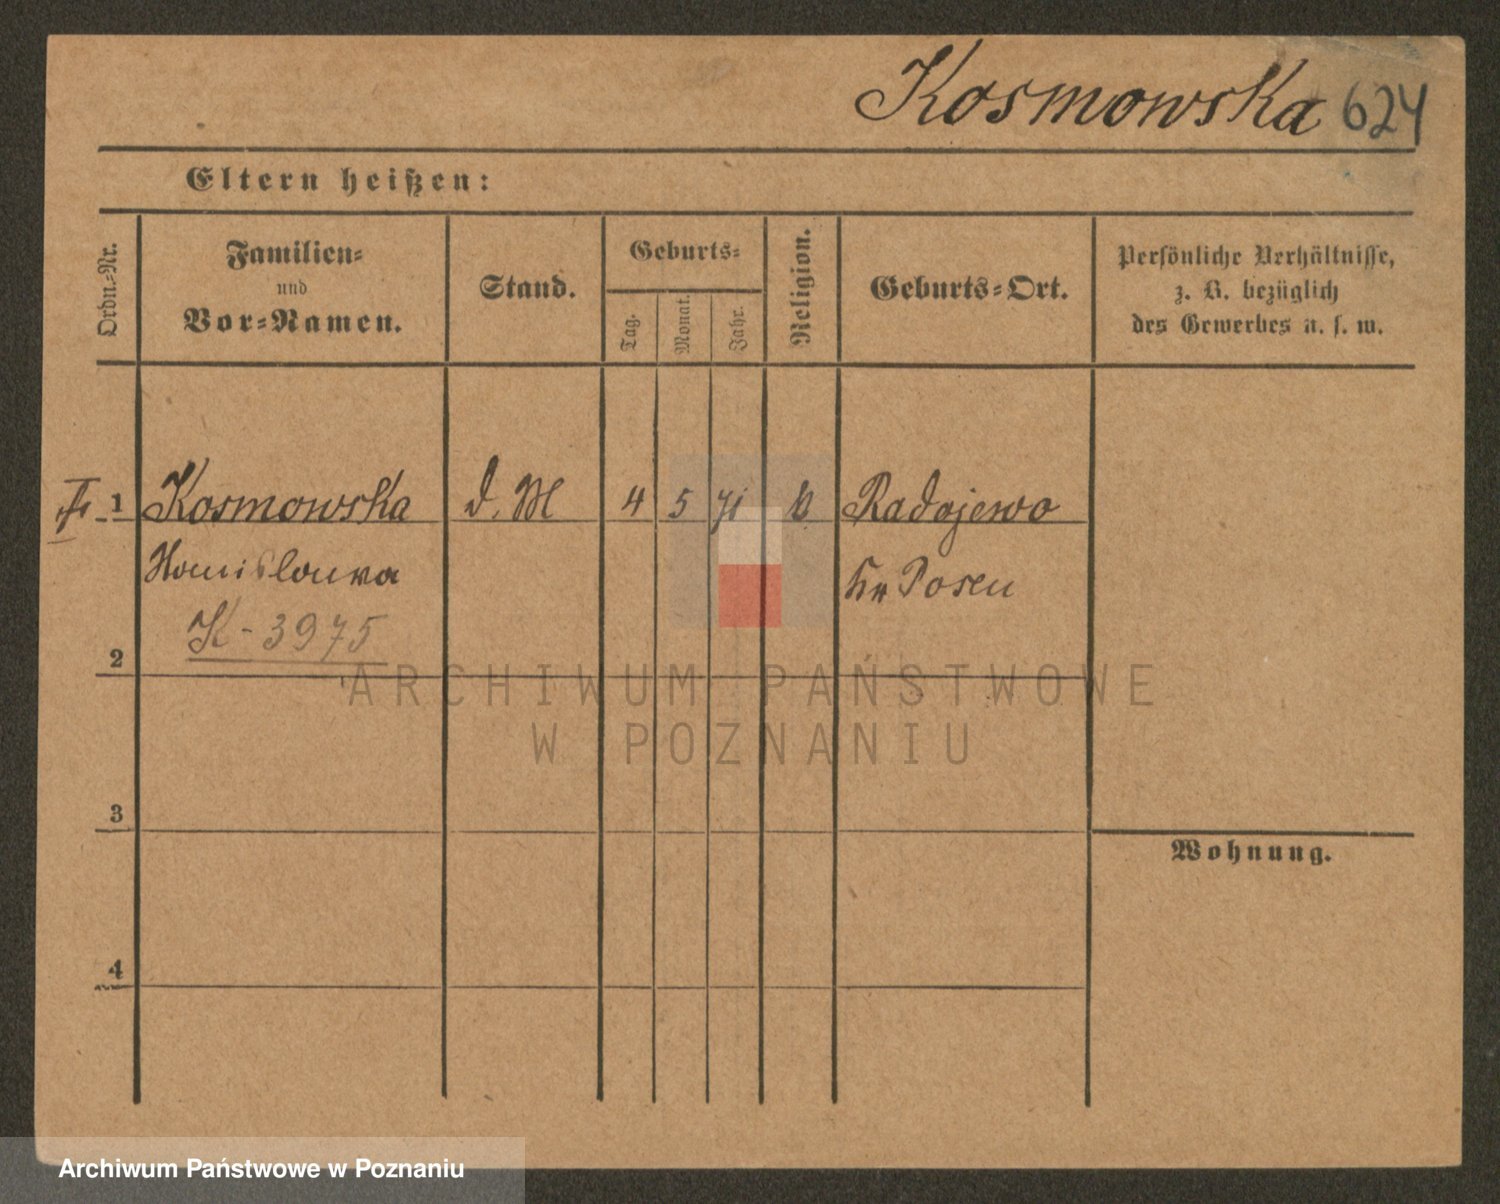 Kosmowska 624
Eltern heißen:
Ordn.-Nr.
Familien-
und
Vor-Namen.
Stand.
Geburts-
Tag.
Monat.
Jahr.
Religion.
Geburts-Ort.
Persönliche Verhältnisse,
z. B. bezüglich
des Gewerbes u. s. w.
1 Kosmowska d. M 4 5 71 k Radojewo
Stanislawa Kr Posen
K-3975
2
3
4
Wohnung.
ARCHIWUM PAŃSTWOWE
W POZNANIU
Archiwum Państwowe w Poznaniu